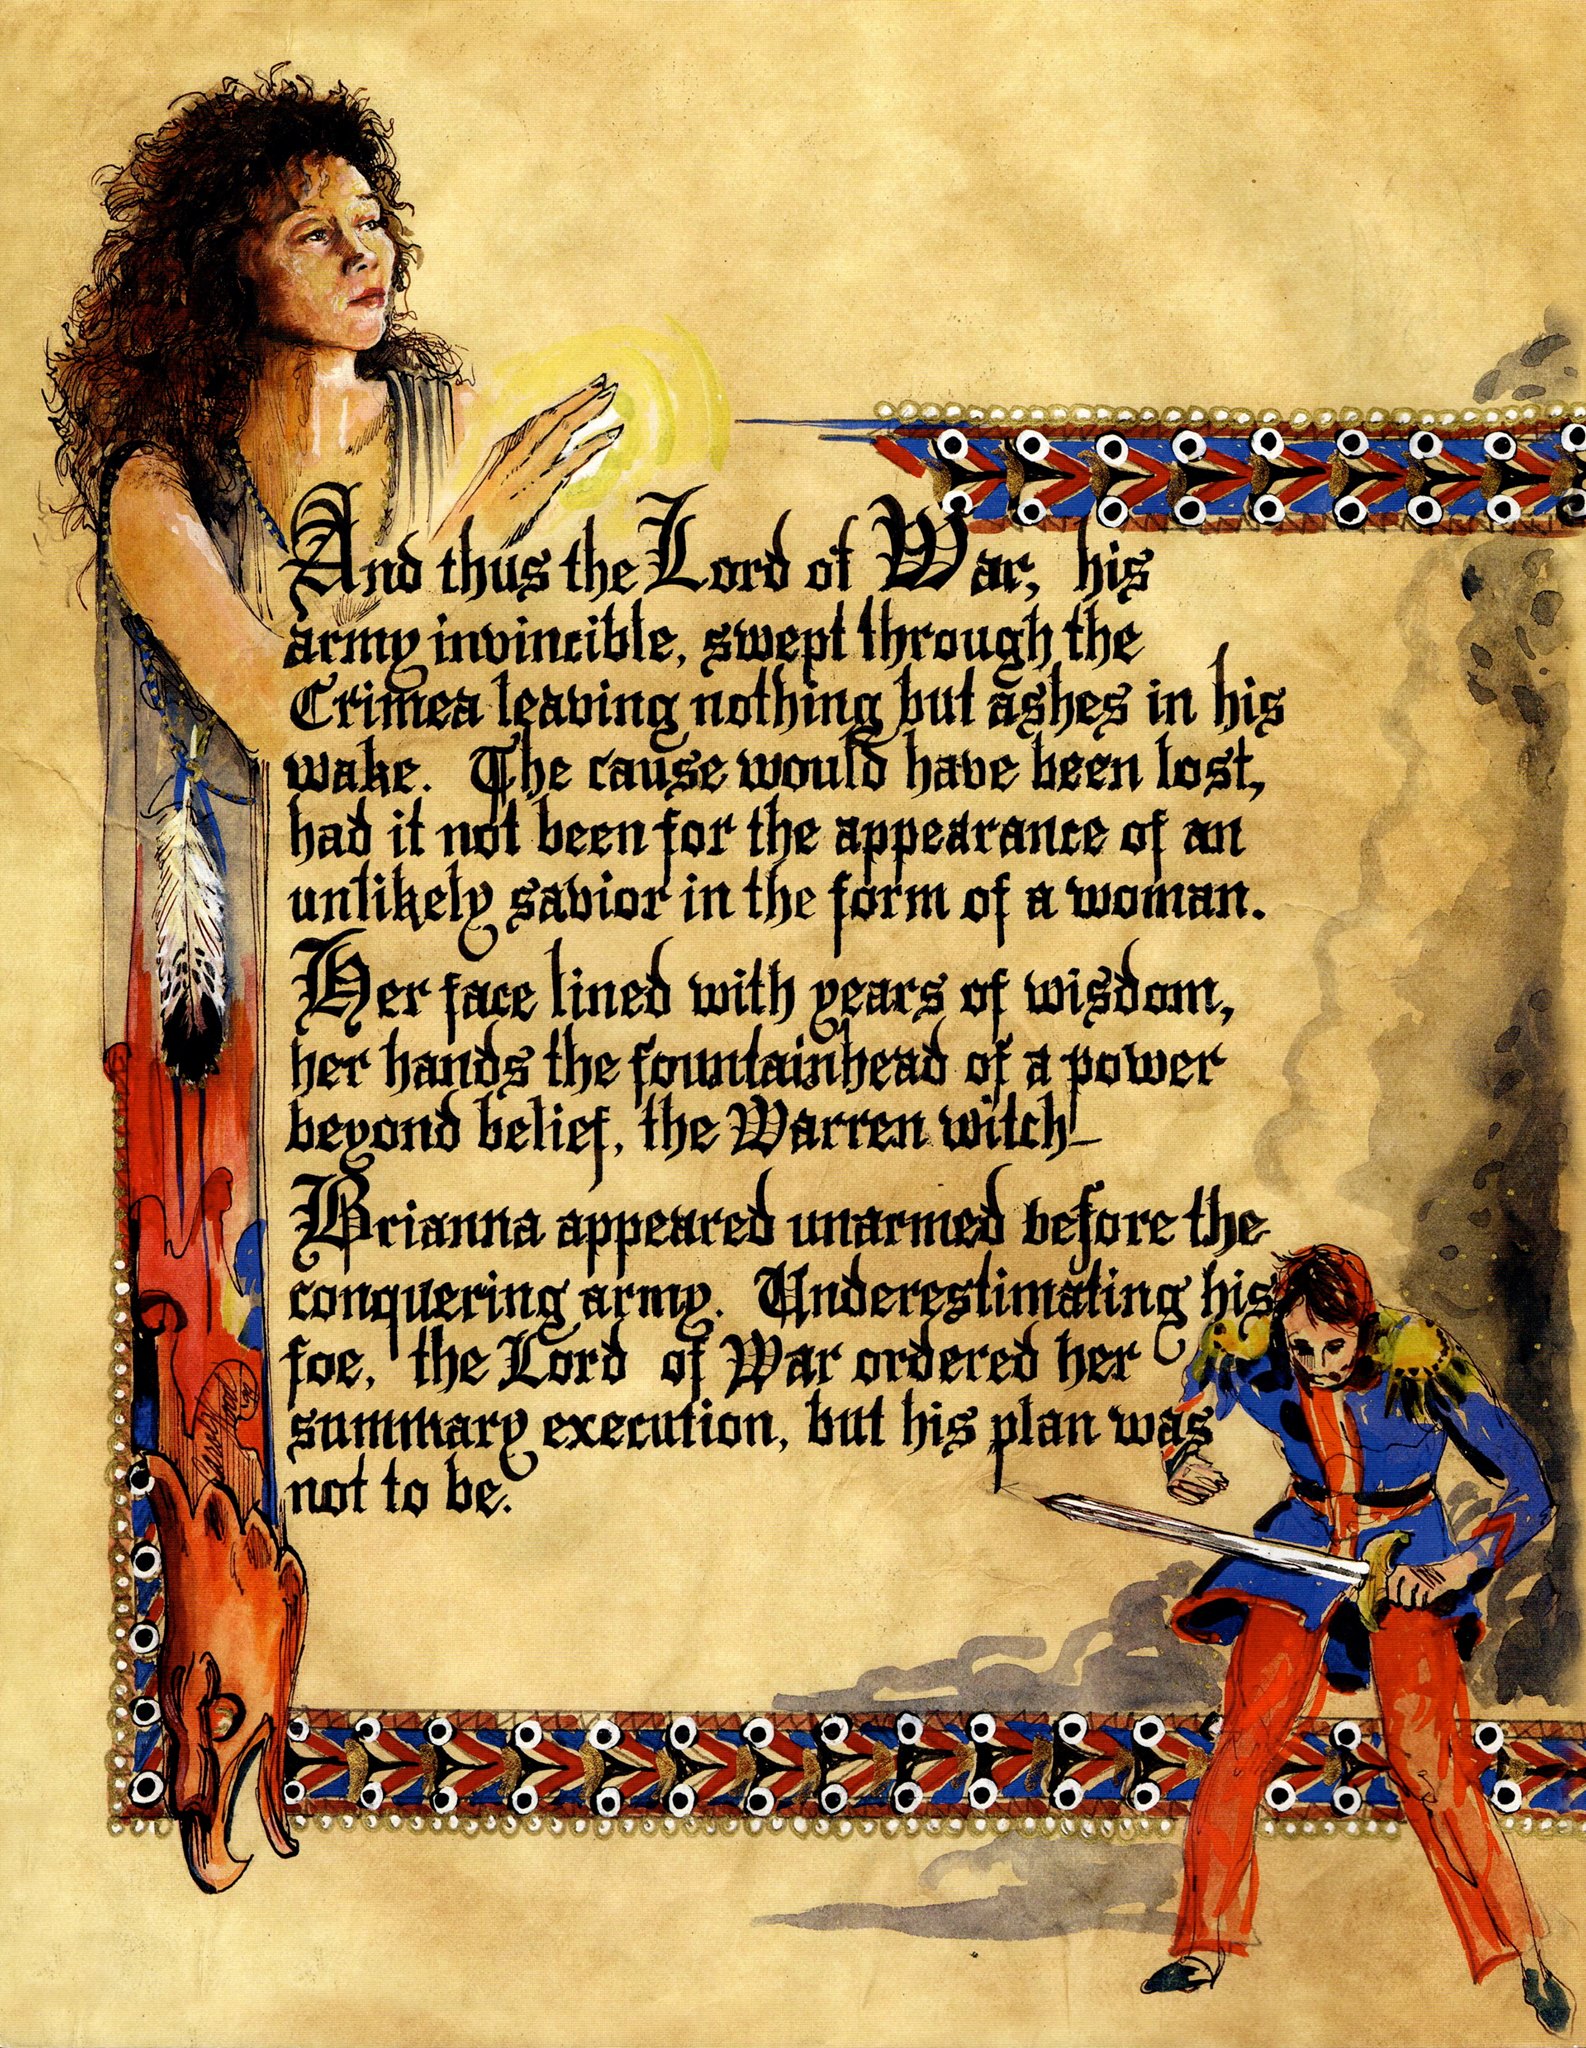 And thus the Lord of War, his
army invincible, swept through the
Crimea leaving nothing but ashes in his
wake. The cause would have been lost,
had it not been for the appearance of an
unlikely savior in the form of a woman.
Her face lined with years of wisdom,
her hands the fountainhead of a power
beyond belief, the Warren witch_
Brianna appeared unarmed before the
conquering army. Underestimating his
foe, the Lord of War ordered her
summary execution, but his plan was
not to be.